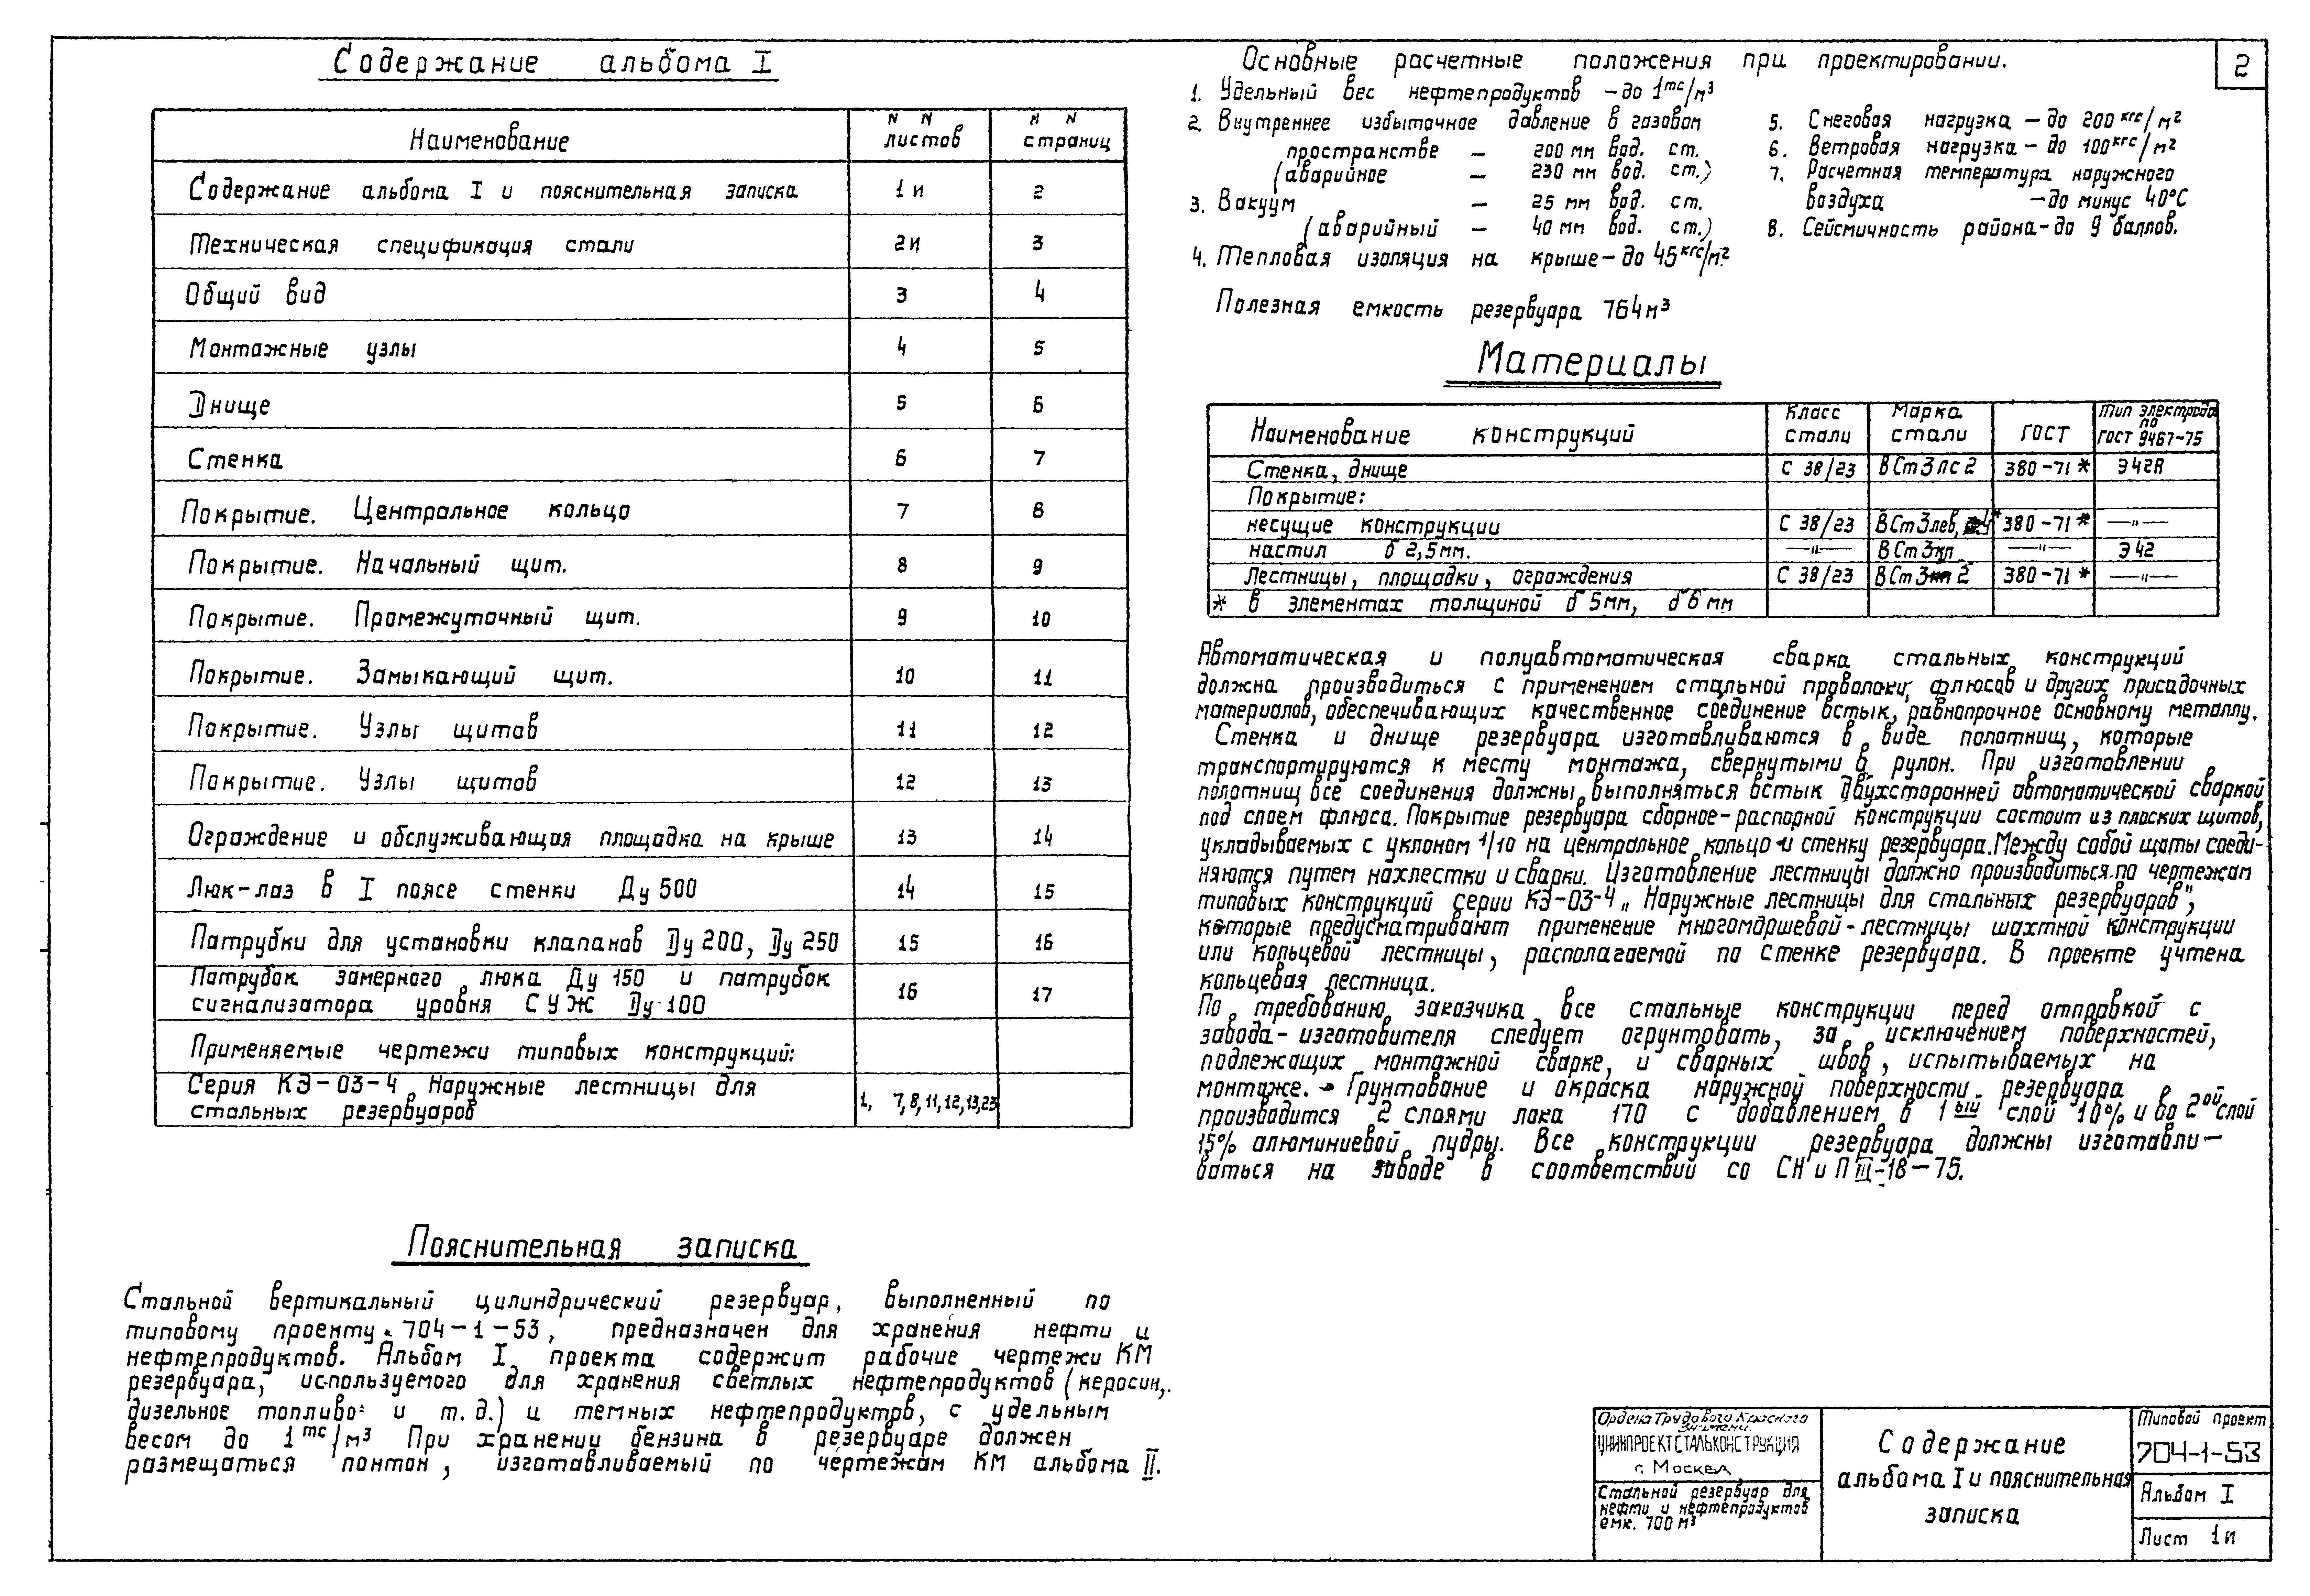 2
Содержание альбома I
Наименование
N N листов
N N страниц
Содержание альбома I и пояснительная записка 1и 2
Техническая спецификация стали 2и 3
Общий вид 3 4
Монтажные узлы 4 5
Днище 5 6
Стенка 6 7
Покрытие. Центральное кольцо 7 8
Покрытие. Начальный щит. 8 9
Покрытие. Промежуточный щит. 9 10
Покрытие. Замыкающий щит. 10 11
Покрытие. Узлы щитов 11 12
Покрытие. Узлы щитов 12 13
Ограждение и обслуживающая площадка на крыше 13 14
Люк-лаз в I поясе стенки Ду 500 14 15
Патрубки для установки клапанов Ду 200, Ду 250 15 16
Патрубок замерного люка Ду 150 и патрубок
сигнализатора уровня СУЖ Ду 100 16 17
Применяемые чертежи типовых конструкций:
Серия КЭ-03-4 Наружные лестницы для
стальных резервуаров 1, 7,8,11,12,13,23
Пояснительная записка
Стальной вертикальный цилиндрический резервуар, выполненный по
типовому проекту 704-1-53, предназначен для хранения нефти и
нефтепродуктов. Альбом I проекта содержит рабочие чертежи КМ
резервуара, используемого для хранения светлых нефтепродуктов (керосин,
дизельное топливо и т.д.) и темных нефтепродуктов, с удельным
весом до 1тс/м³ При хранении бензина в резервуаре должен
размещаться понтон, изготавливаемый по чертежам КМ альбома II.
Основные расчетные положения при проектировании.
1. Удельный вес нефтепродуктов – до 1тс/м³
2. Внутреннее избыточное давление в газовом
пространстве – 200 мм вод. ст.
(аварийное – 230 мм вод. ст.)
3. Вакуум – 25 мм вод. ст.
(аварийный – 40 мм вод. ст.)
4. Тепловая изоляция на крыше – до 45кгс/м²
5. Снеговая нагрузка – до 200 кгс/м²
6. Ветровая нагрузка – до 100кгс/м²
7. Расчетная температура наружного
воздуха – до минус 40°С
8. Сейсмичность района – до 9 баллов.
Полезная емкость резервуара 764м³
Материалы
Наименование конструкций
Класс стали
Марка стали
ГОСТ
Тип электрода по ГОСТ 9467-75
Стенка, днище С 38/23 ВСт3пс2 380-71* Э42А
Покрытие:
несущие конструкции С 38/23 380-71* —"—
настил δ 2,5мм. —"— ВСт3кп —"— Э42
Лестницы, площадки, ограждения С 38/23 ВСт3кп2 380-71* —"—
* в элементах толщиной δ 5мм, δ 6мм
Автоматическая и полуавтоматическая сварка стальных конструкций
должна производиться с применением стальной проволоки, флюсов и других присадочных
материалов, обеспечивающих качественное соединение встык, равнопрочное основному металлу.
Стенка и днище резервуара изготавливаются в виде полотнищ, которые
транспортируются к месту монтажа, свернутыми в рулон. При изготовлении
полотнищ все соединения должны выполняться встык двухсторонней автоматической сваркой
под слоем флюса. Покрытие резервуара сборное-распорной конструкции состоит из плоских щитов,
укладываемых с уклоном 1/10 на центральное кольцо и стенку резервуара. Между собой щиты соеди-
няются путем нахлестки и сварки. Изготовление лестницы должно производиться по чертежам
типовых конструкций серии КЭ-03-4 „Наружные лестницы для стальных резервуаров",
которые предусматривают применение многомаршевой-лестницы шахтной конструкции
или кольцевой лестницы, располагаемой по стенке резервуара. В проекте учтена
кольцевая лестница.
По требованию заказчика все стальные конструкции перед отправкой с
завода-изготовителя следует огрунтовать, за исключением поверхностей,
подлежащих монтажной сварке, и сварных швов, испытываемых на
монтаже. Грунтование и окраска наружной поверхности резервуара
производится 2 слоями лака 170 с добавлением в 1ый слой 10% и во 2ой слой
15% алюминиевой пудры. Все конструкции резервуара должны изготавли-
ваться на заводе в соответствий со СН и П III-18-75.
Ордена Трудового Красного
Знамени
ЦНИИПРОЕКТСТАЛЬКОНСТРУКЦИЯ
г. Москва
Стальной резервуар для
нефти и нефтепродуктов
емк. 700 м³
Содержание
альбома I и пояснительная
записка
Типовой проект
704-1-53
Альбом I
Лист 1и